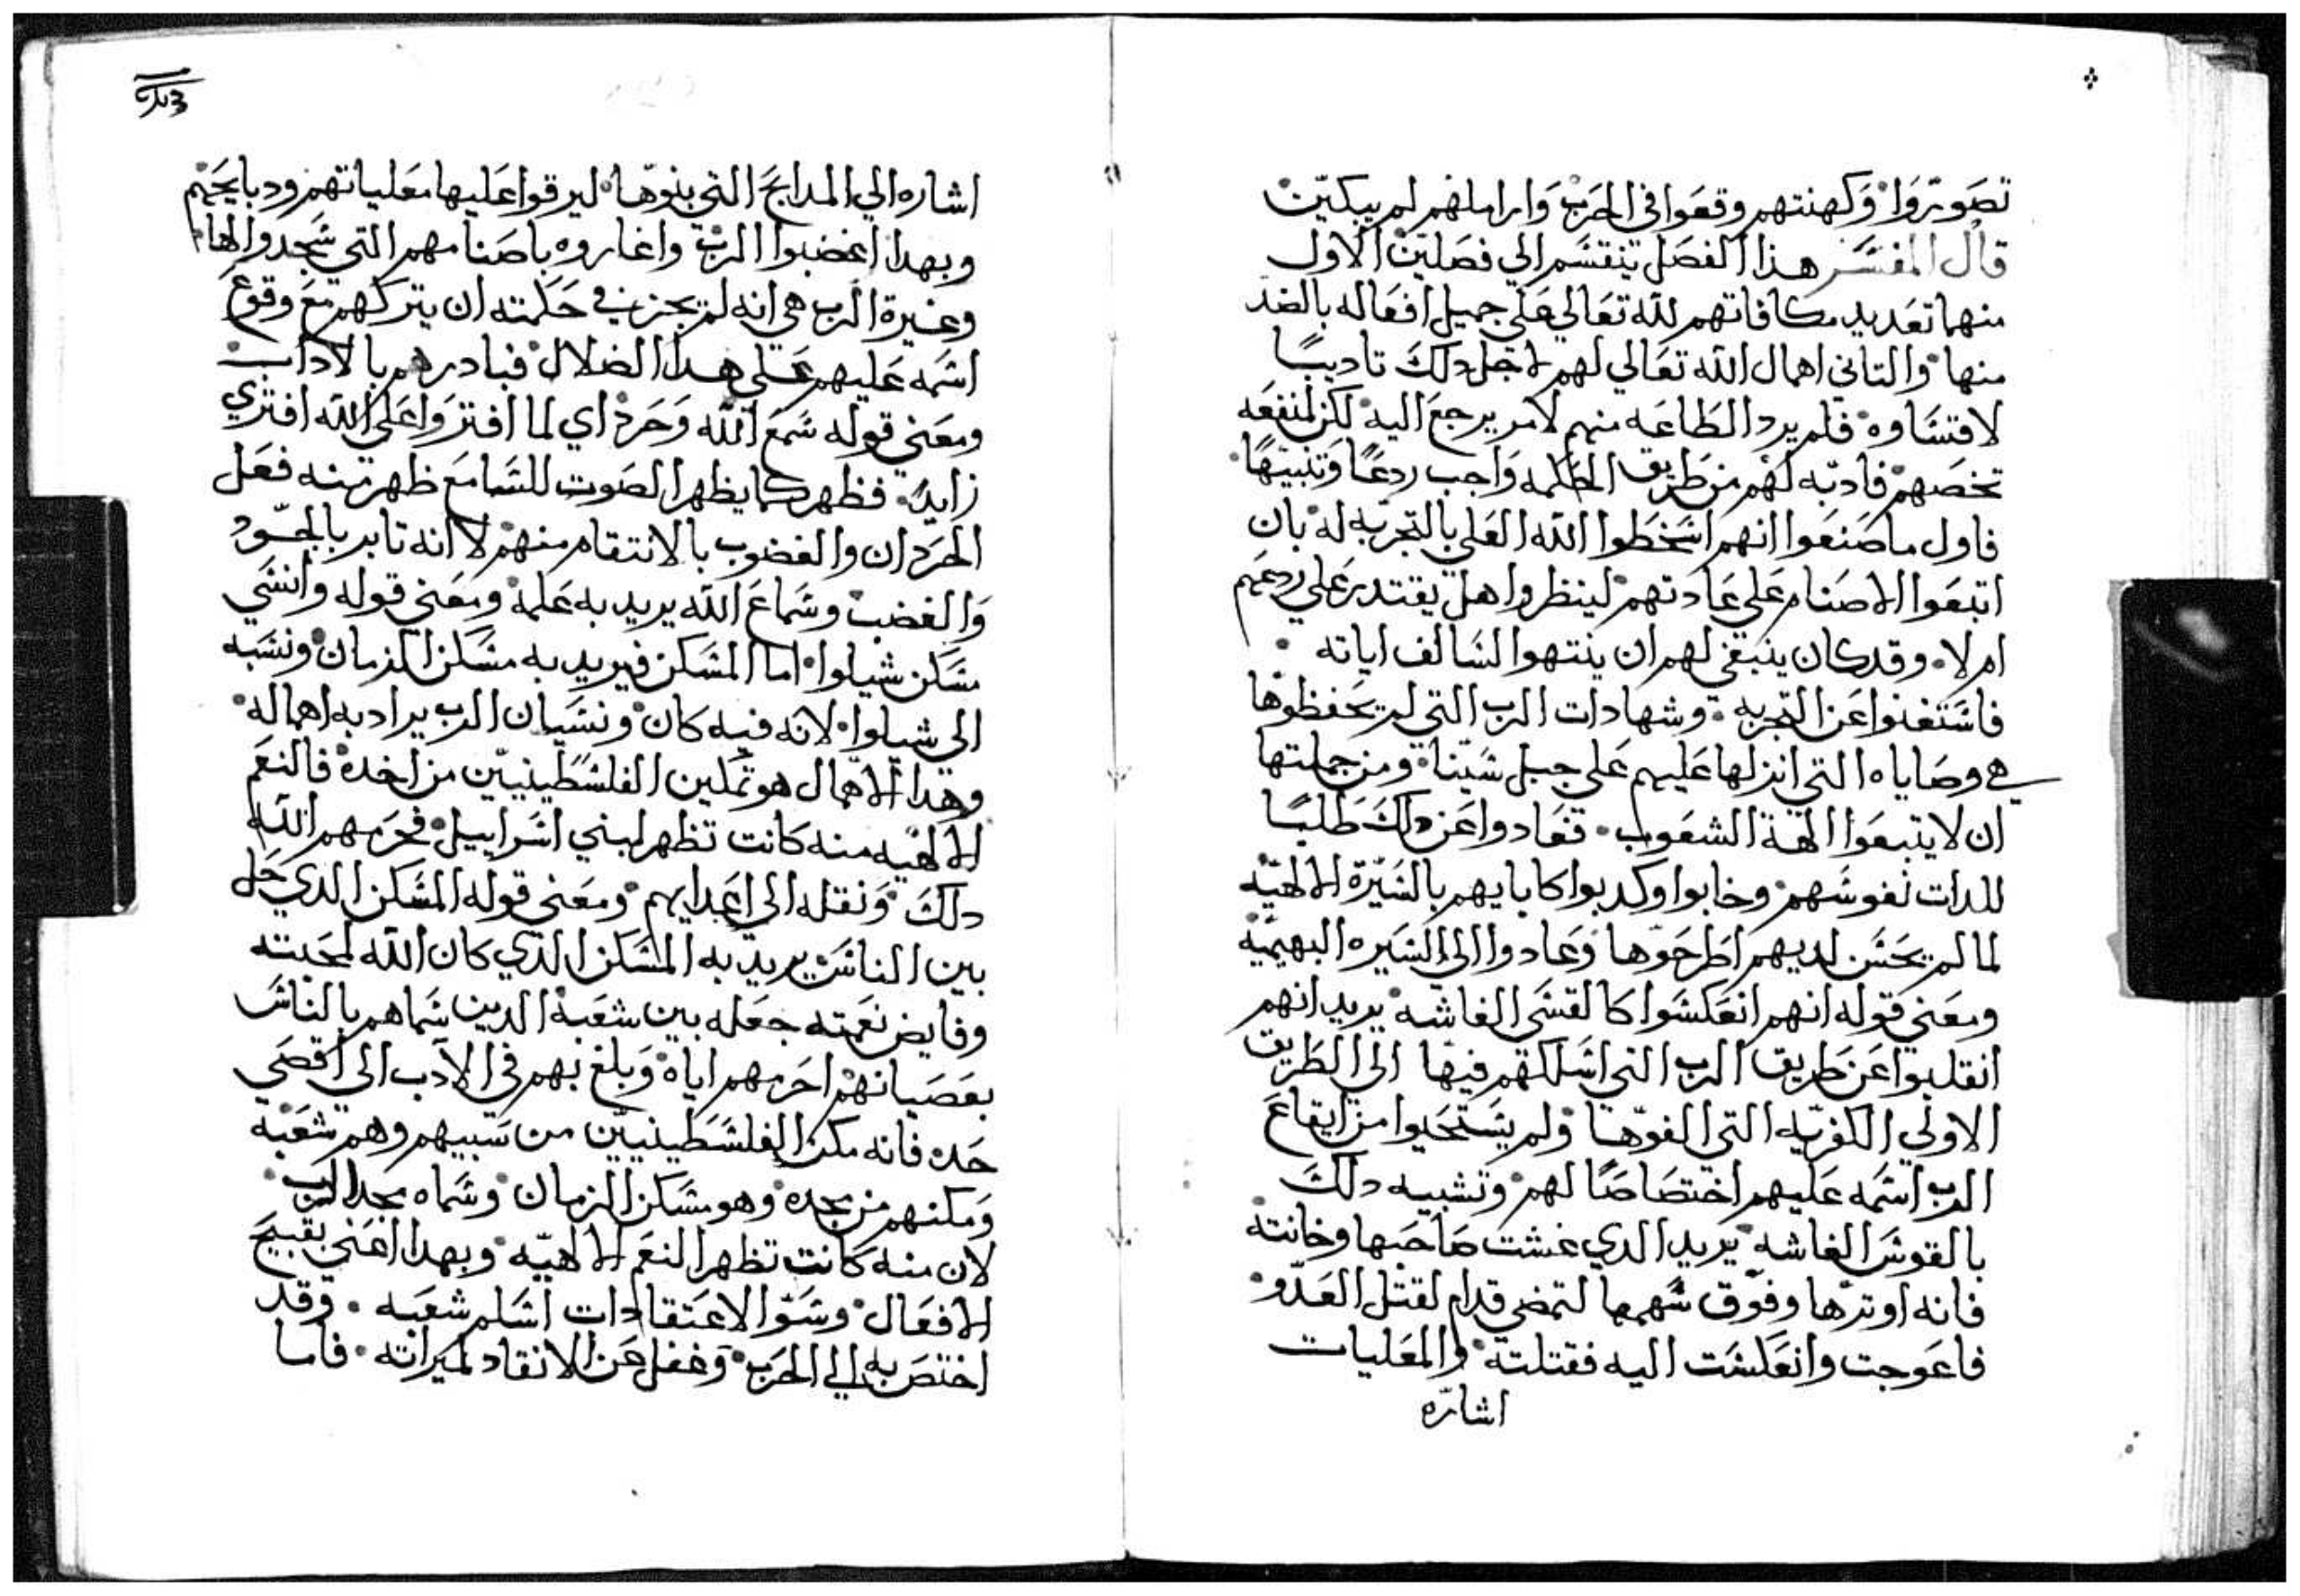 تصوتروا وكهنتهم وقعوا في الحرب واراملهم لم يبكين
قال المفسر هذا الفصل ينقسم الي فصلين الاول
منهما تعديد مكافاتهم لله تعالي علي جميل افعاله بالضد
منها والتاني اهمال الله تعالي لهم لاجل دلك تاديبًا
لا قتساوه فلم يرد الطاعه منهم لامر يرجع اليه لكن لمنفعه
تخصهم فادبه لهم من طريق الحكمه واجب ردعًا وتنبيهًا
فاول ما صنعوا انهم اسخطوا الله العلي بالتجربه له بان
اتبعوا الاصنام علي عادتهم لينظروا هل يقتدر علي ردعهم
ام لا وقد كان ينبغي لهم ان ينتهوا لسالف اياته
فاستغنوا عن التجربه وشهادات الرب التي لم يحفظوها
هي وصاياه التي انزلها عليهم علي جبل سينا ومن جملتها
ان لا يتبعوا الهة الشعوب فعادوا عن دلك طلبًا
للدات نفوسهم وخابوا وكدبوا كابايهم بالسيرة الالهيه
لما لم يحسن لديهم اطرحوها وعادوا الي السيره البهيميه
ومعني قوله انهم انعكسوا كالقسي الغاشه يريد انهم
انقلبوا عن طريق الرب التي اسلكهم فيها الي الطريق
الاولي الكفريه التي الفوها ولم يستحيوا من ايقاع
الرب اسمه عليهم اختصاصًا لهم وتشبيه دلك
بالقوس الغاشه يريد الدي غشت صاحبها وخانته
فانه اوترها وفوق سهمها لتمضي قدام لقتل العدو
فاعوجت وانعكست اليه فقتلته والمعليات
اشاره
اشاره الي المدابح التي بنوها ليرقوا عليها معلياتهم ودبايحهم
وبهدا اغضبوا الرب واغاروه باصنامهم التي سجدوا لها
وغيرة الرب هي انه لم يجز في حكمته ان يتركهم مع وقوع
اسمه عليهم علي هدا الضلال فبادرهم بالاداب
ومعني قوله سمع الله وحرد اي لما افتروا علي الله افتري
زايد فظهر كما يظهر الصوت للسامع ظهر منه فعل
الحردان والغضوب بالانتقام منهم لا انه تابر بالحرد
والغضب وسماع الله يريد به علمه ومعني قوله وانسي
مسكن شيلوا اما المسكن فيريد به مسكن الزمان ونسبه
الي شيلوا لانه فيه كان ونسيان الرب يراد به اهماله
وهدا الاهمال هو تمكين الفلسطينيين من اخده فالنعم
الالهيه منه كانت تظهر لبني اسراييل فحرمهم الله
دلك ونقله الي اعدايهم ومعني قوله المسكن الدي حل
بين الناس يريد به المسكن الدي كان الله لمحبته
وفايض نعمته جعله بين شعبه الدين سماهم بالناس
بعصيانهم احرمهم اياه وبلغ بهم في الادب الي اقصي
حده فانه مكن الفلسطينيين من سبيهم وهم شعبه
ومكنهم من مجده وهو مسكن الزمان وسماه مجد الرب
لان منه كانت تظهر النعم الالهيه وبهدا اعني بقبيح
الافعال وسو الاعتقادات اسلم شعبه وقد
اختص به الي الحرب وغفل عن الانقاد لميراته فاما